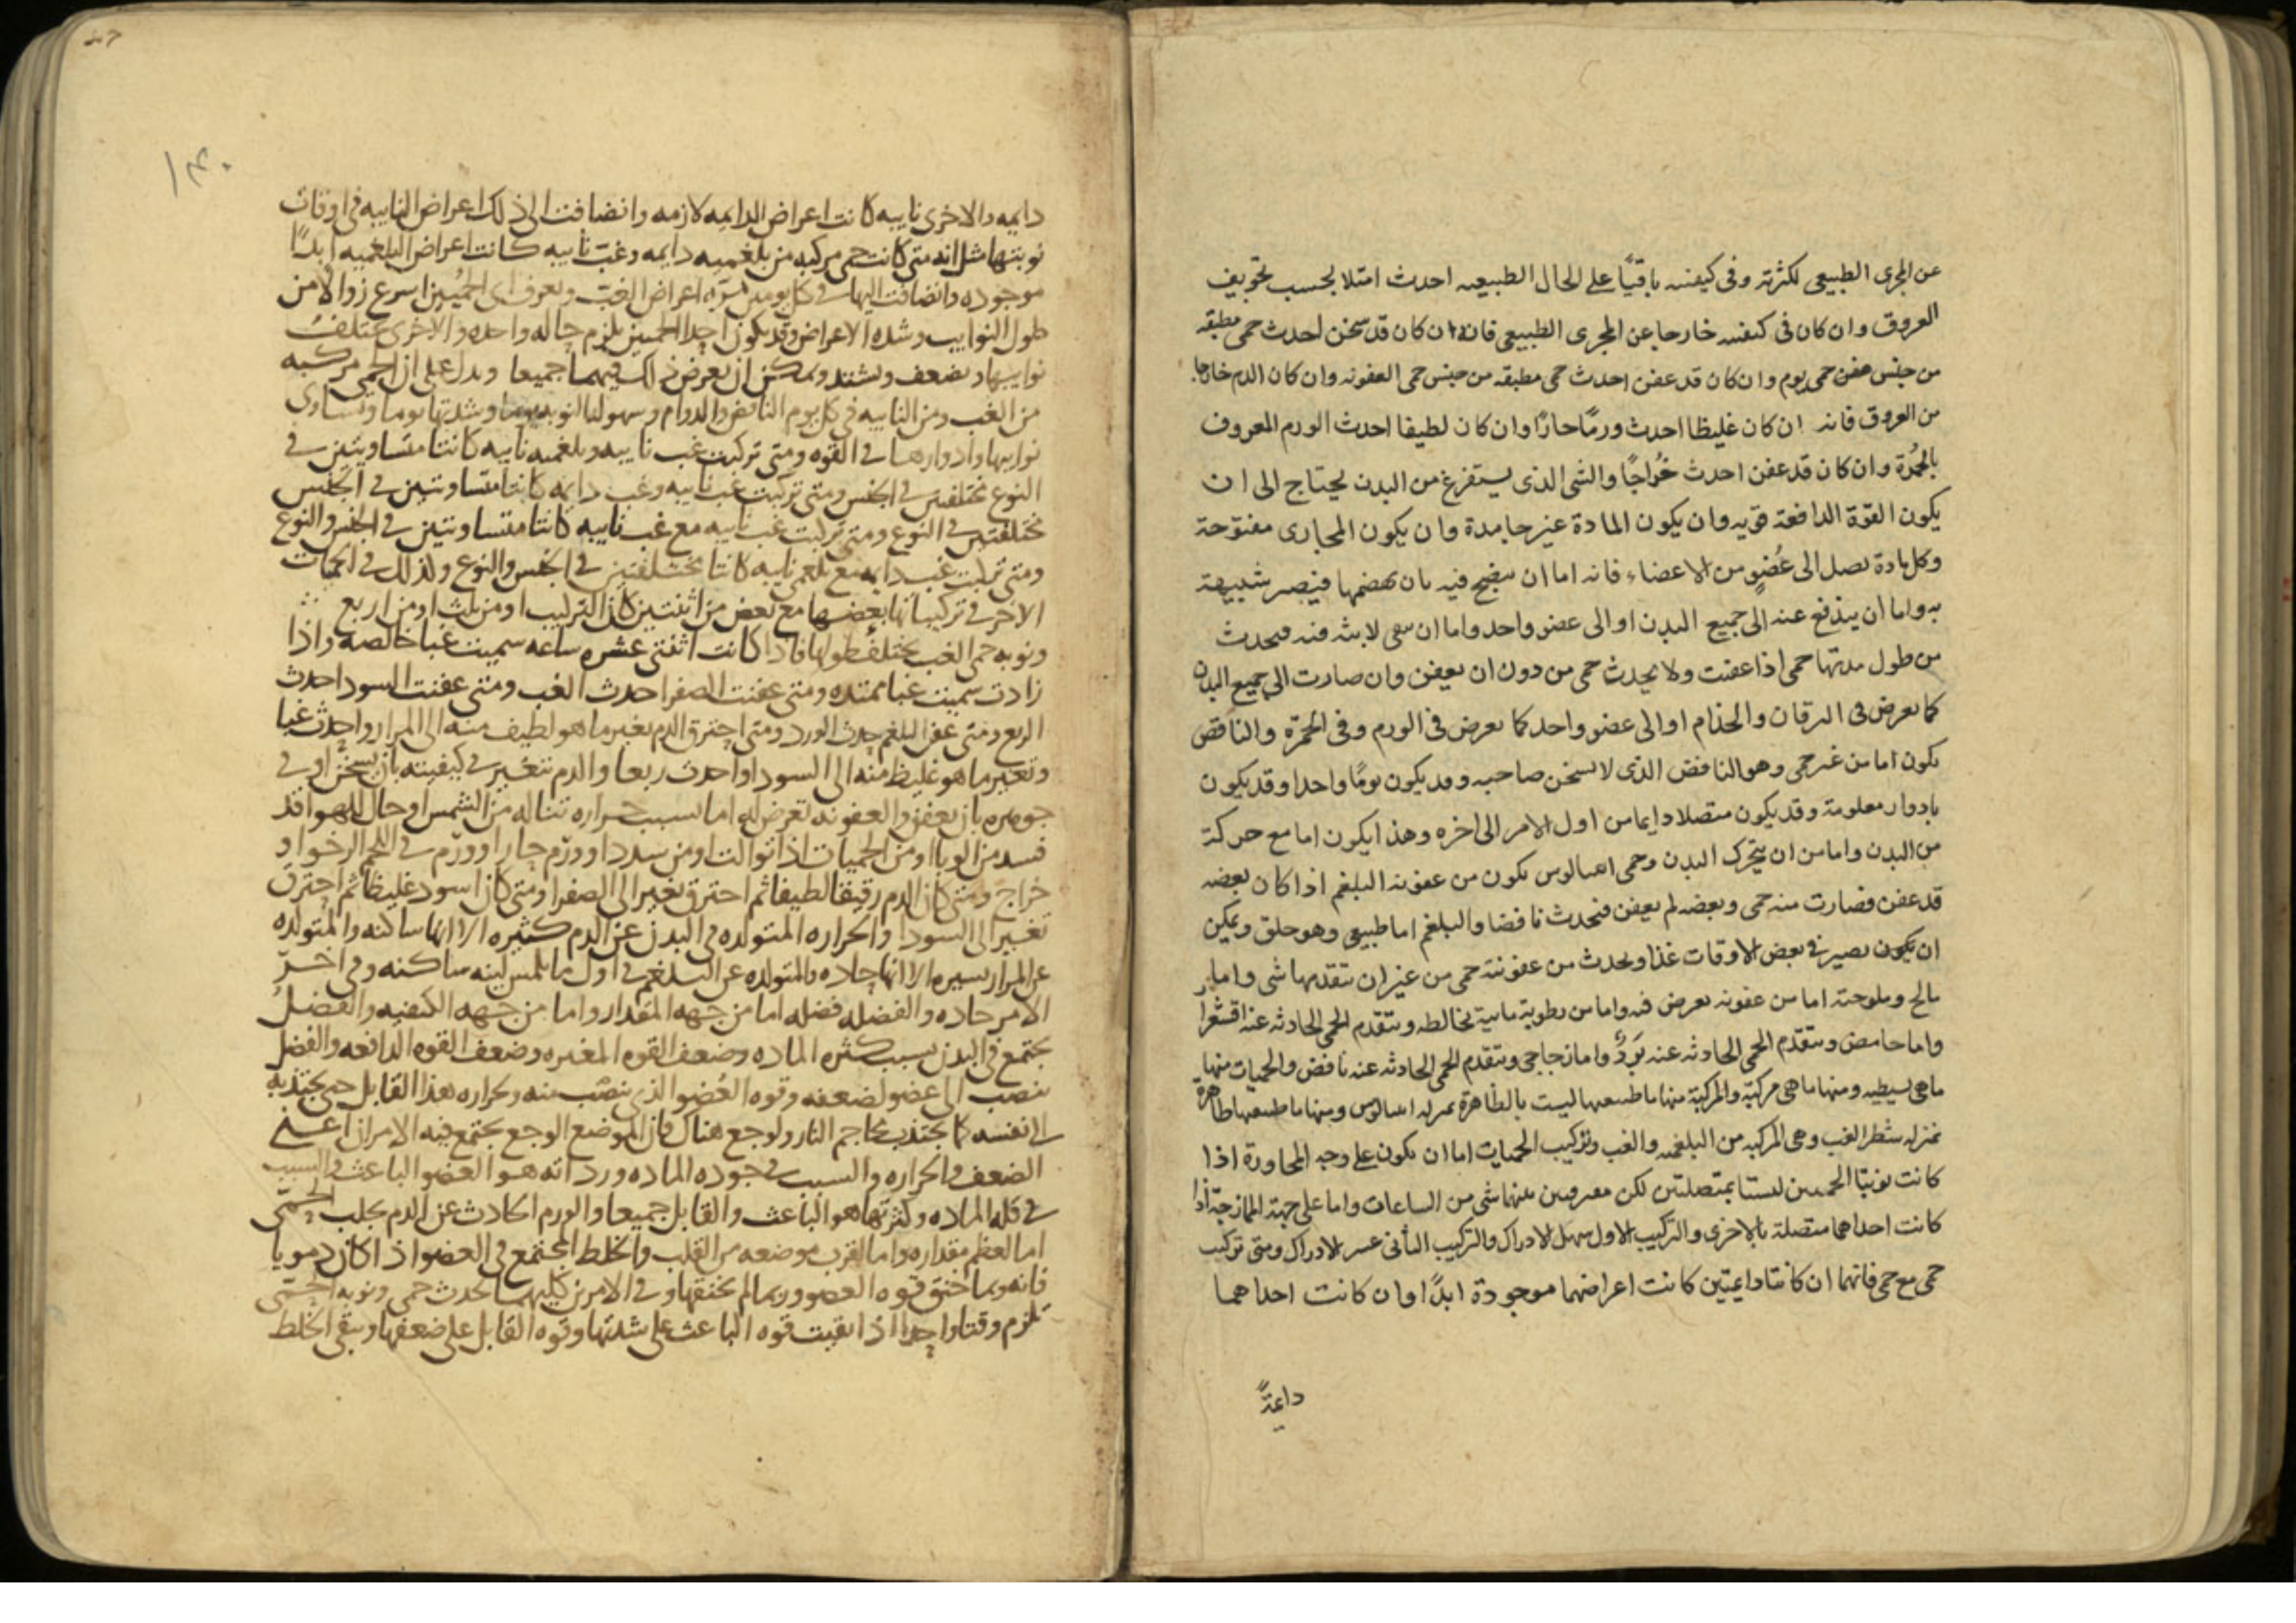 عن المجرى الطبيعى لكثرته وفى كيفيته باقيًا على الحال الطبيعيه احدث امتلا بحسب تجويف
العروق وان كان فى كيفيته خارجا عن المجرى الطبيعى فانه ان كان قد سخن احدث حمى مطبقه
من جنس حمى يوم وان كان قد عفن احدث حمى مطبقه من جنس حمى العفونه وان كان الدم خارجا
من العروق فانه ان كان غليظا احدث ورمًا حارًا وان كان لطيفا احدث الورم المعروف
بالحُمرة وان كان قد عفن احدث خُراجًا والشى الذى يستفرغ من البدن يحتاج الى ان
يكون القوة الدافعة قويه وان يكون المادة غير جامدة وان يكون المجارى مفتوحة
وكل مادة تصل الى عُضوٍ من الاعضاء فانه اما ان ينضج فيه بان يهضمها فيصير شبيهة
به واما ان يندفع عنه الى جميع البدن او الى عضو واحد واما ان يبقى لابثه فيه فيحدث
من طول مدتها حمى اذا عفنت ولا يحدث حمى من دون ان يعفن وان صارت الى جميع البدن
كما يعرض فى اليرقان والجذام او الى عضو واحد كما يعرض فى الورم وفى الحمرة والنافض
يكون اما من غير حمى وهو النافض الذى لا يسخن صاحبه وقد يكون يومًا واحدا وقد يكون
بادوار معلومة وقد يكون متصلا دايما من اول الامر الى اخره وهذا يكون اما مع حركة
من البدن واما من ان يتحرك البدن وحمى يكون من عفونه البلغم اذا كان بعضه
قد عفن فصارت منه حمى وبعضه لم يعفن فيحدث نافضا والبلغم اما طبيعى وهو حلو ويمكن
ان يكون يصير فى بعض الاوقات غذا ويحدث من عفونته حمى من غير ان تتقدمها شى واما
مالح وملوحته اما من عفونه يعرض فيه واما من رطوبة مايية تخالطه ويتقدم الحمى الحادثه عنه اقشعرار
واما حامض ويتقدم الحمى الحادثه عنه بَردٌ واما زجاجى ويتقدم الحمى الحادثه عنه نافض والحميات منها
ماهى بسيطيه ومنها ماهى مركبة والمركبة منها ما طبيعتها ليست بالظاهرة بمنزله ومنها ما طبيعتها ظاهرة
بمنزله شطر الغب وهى المركبه من البلغميه والغب وتركيب الحميات اما ان يكون على وجه المجاورة اذا
كانت نوبتا الحميين ليستا بمتصلتين لكن بينهما شى من الساعات واما على جهة الممازجة اذا
كانت احداهما متصلة بالاخرى والتركيب الاول سهل الادراك والتركيب الثانى عسر الادراك ومتى تركبت
حمى مع حمى فانهما ان كانتا دايمتين كانت اعراضهما موجودة ابدًا وان كانت احداهما
دايمةً
١٤٠
دايمه والاخرى نايبه كانت اعراض الدايمه لازمه وانضافت الى ذلك اعراض النايبه فى اوقات
نوبتها مثل انه متى كانت حمى مركبه من بلغميه دايمه وغب نايبه كانت اعراض البلغميه ابدًا
موجوده وانضافت اليها فى كل يومين مره اعراض الغب وتعرف اى الحميين اسرع زوالا من
طول النوايب وشده الاعراض وقد يكون احدا الحميين يلزم حاله واحده والاخرى تختلف
نوايبها وتضعف وتشتد ويمكن ان يعرض ذلك فيهما جميعا ويدل على ان الحمى مركبه
من الغب ومن النايبه فى كل يوم النافض والدوام وسهوله النوبه يوما وشدتها يوما وتساوى
نوايبها وادوارها فى القوه ومتى تركبت غب نايبه وبلغميه نايبه كانتا متساويتين فى
النوع مختلفتين فى الجنس ومتى تركبت غب نايبه وغب دايمه كانتا متساويتين فى الجنس
مختلفتين فى النوع ومتى تركبت غب نايبه مع غب نايبه كانتا متساويتين فى الجنس والنوع
ومتى تركبت غب دايمه مع بلغمى نايبه كانتا مختلفتين فى الجنس والنوع وكذلك فى الحميات
الاخر فى تركيباتها بعضها مع بعض من اثنتين كان التركيب او من ثلث او من اربع
ونوبه حمى الغب يختلف طولها فاذا كانت اثنتى عشره ساعه سميت غبا خالصه واذا
زادت سميت غبا ممتده ومتى عفنت الصفرا احدث الغب ومتى عفنت السودا احدث
الربع ومتى عفن البلغم حدث الورد ومتى احترق الدم تغير ما هو لطيف منه الى المرار واحدث غبا
وتغير ما هو غليظ منه الى السودا واحدث ربعا والدم تتغير فى كيفيته بان يسخن او فى
جوهره بان يعفن والعفونه تعرض له اما بسبب حراره تناله من الشمس او حال للهوا قد
فسد من الوبا او من الحميات اذا توالت او من سدد او ورم حار او ورم فى اللحم الرخو او
خراج ومتى كان الدم رقيقا لطيفا ثم احترق تغير الى الصفرا ومتى كان اسود غليظا ثم احترق
تغير الى السودا والحراره المتولده فى البدن عن الدم كثيره الا انها ساكنه والمتولده
عن المرار يسيره الا انها حاده والمتولده عن البلغم فى اول ما يلمس لينه ساكنه وفى اخر
الامر حاده والفضله فضله اما من جهه المقدار واما من جهه الكيفيه والفضل
يجتمع فى البدن بسبب كثره الماده وضعف القوه المغيره وضعف القوه الدافعه والفضل
ينصب الى عضو لضعفه وقوه العُضو الذى ينصب منه وحراره هذا القابل حتى يجتذبه
الى نفسه كما يجتذب محاجم النار ولوجع هناك فان الموضع الوجع يجتمع فيه الامران اعنى
الضعف والحراره والسبب فى جوده الماده ورداته هو العضو الباعث والسبب
فى قله الماده وكثرتها هو الباعث والقابل جميعا والورم الحادث عن الدم يجلب الحمى
اما لعظم مقداره واما لقرب موضعه من القلب والخلط المجتمع فى العضو اذا كان دمويا
فانه ربما خنق قوه العضو وربما لم يخنقها وفى الامرين كليهما يحدث حمى ونوبه الحمى
تلزم وقتا واحدا اذا بقيت قوه الباعث على شدتها وقوه القابل على ضعفها وبقى الخلط